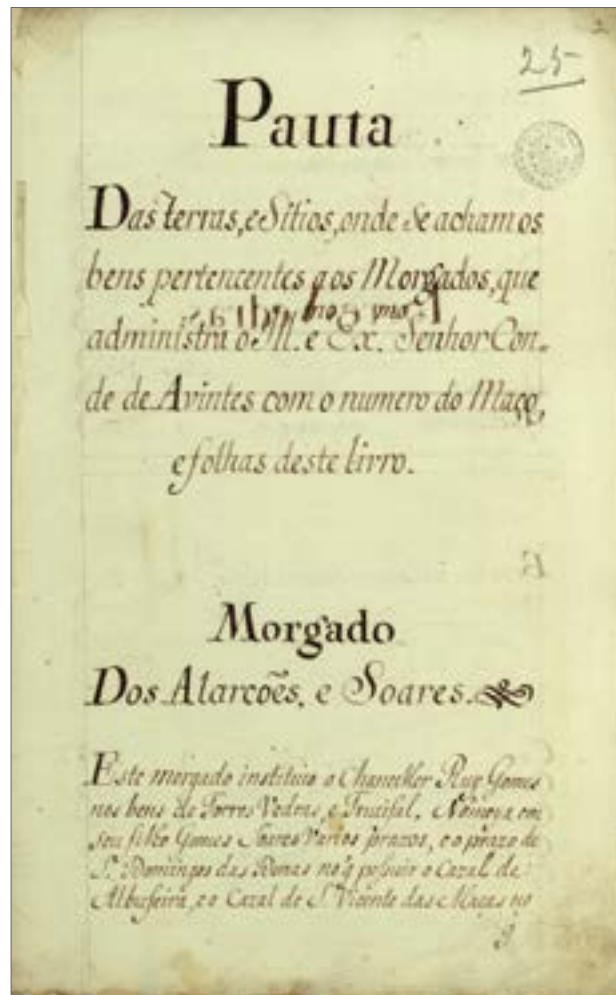 25
Pauta
Das terras, e Sitios, onde se acham os
bens pertencentes aos Morgados, que
administra o M. e Ex. Senhor Con-
de de Avintes com o numero do Maço,
e folhas deste livro.
Morgado
Dos Alarcoẽs, e Soares.
Este morgado instituio o Chanceller Ruy Gomes
nos bens de Torres Vedras, e Trucifal. Nomeya em
seu filho Gomes Soares varios prazos, e o prazo de
S. Domingos das Donas no q̃ possuir o Cazal de
Albufeira, e o Cazal de S. Vicente das Maças no